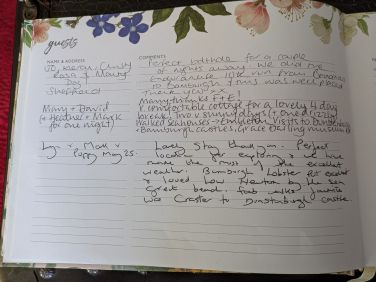 guests
NAME & ADDRESS
COMMENTS
Perfect bolthole for a couple
of nights away. We did the
Endurance 10k run from
to Bamburgh + this was well placed
Thank you xx
Sheffield
Many thanks F + E!
Mary + David
A comfortable cottage for a lovely 4 day
(+ Heather + Mark
break. Two v sunny days + one drizzly.
for one night)
Walked Seahouses → Embleton. Visits to Dunstanburgh
+ Bamburgh castles, Grace Darling museum
+ Matt +
Poppy May 25.
Lovely stay thank you. Perfect
location for exploring & we have
made the "most" of the excellent
weather. Bamburgh Lobster Pot excellent
& loved Low Newton by the sea
Great beach. Fab walks, favourite
was Craster to Dunstanburgh castle.